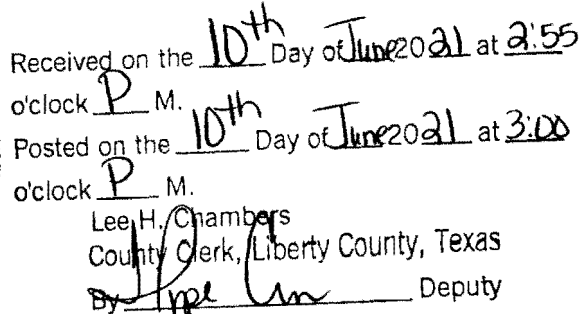 Received on the 10th Day of June 2021 at 2:55
o'clock P M.
Posted on the 10th Day of June 2021 at 3:00
o'clock P M.
Lee H. Chambers
County Clerk, Liberty County, Texas
By Deputy